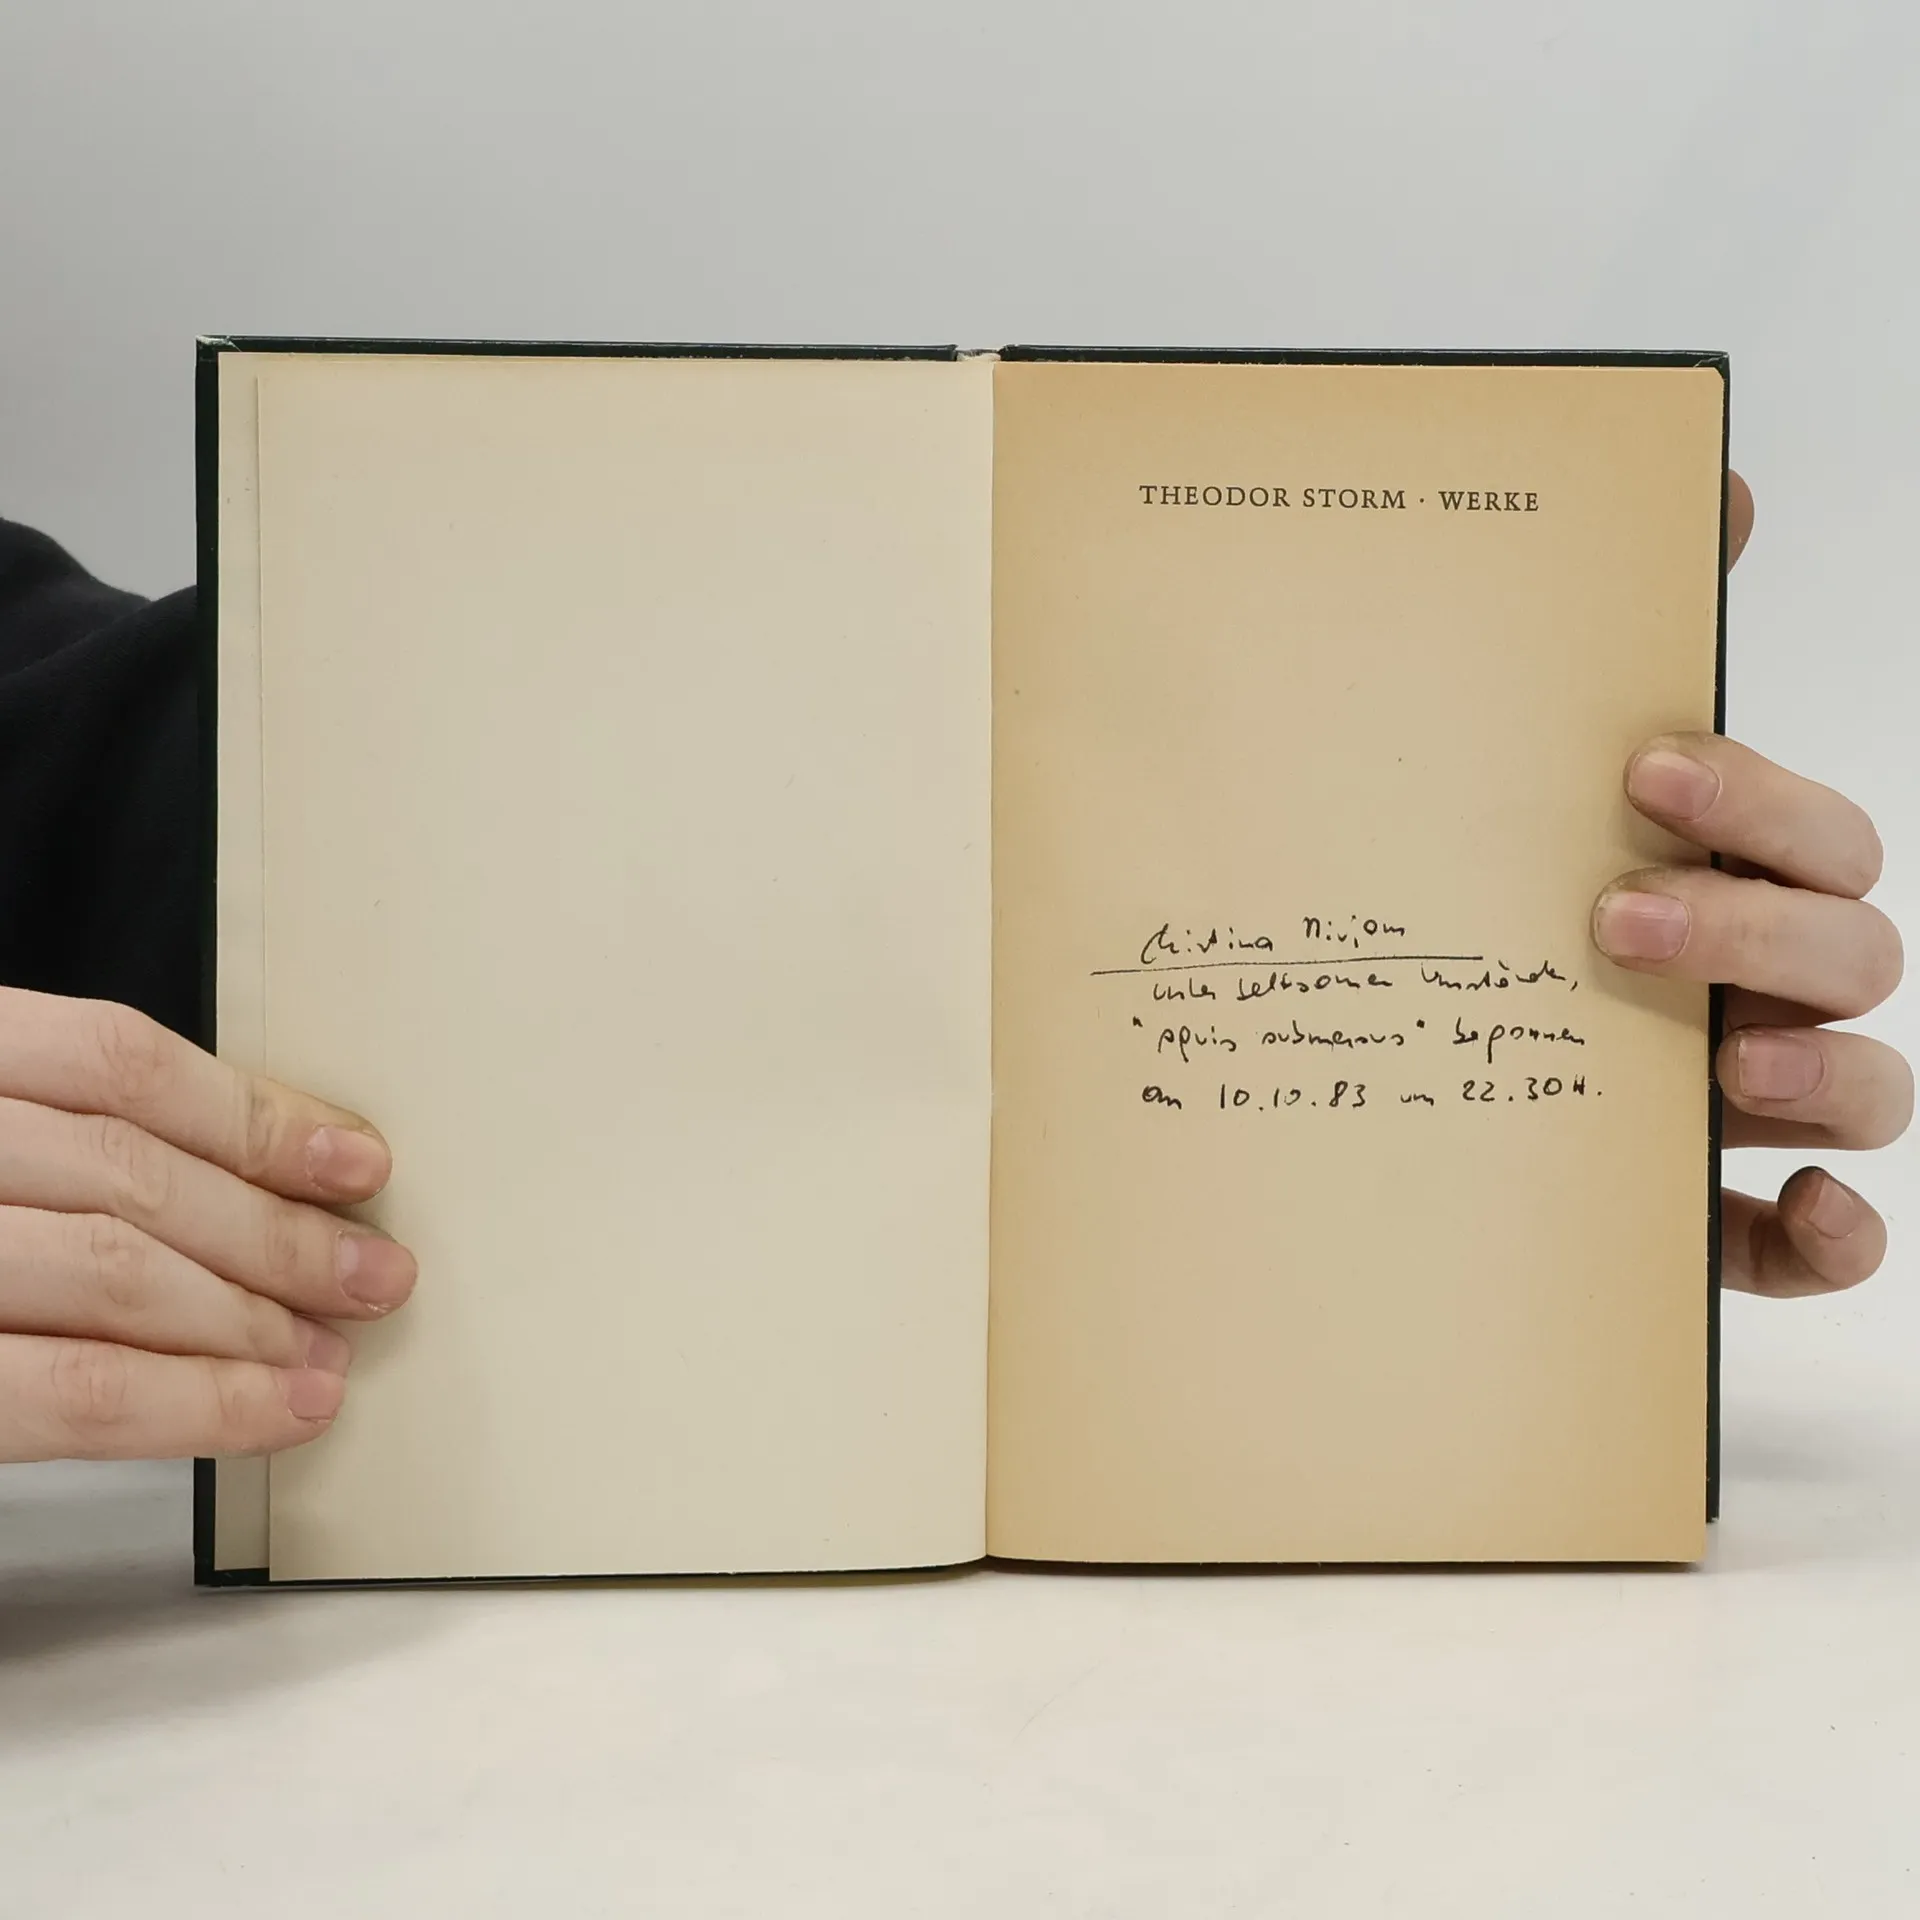 THEODOR STORM · WERKE
Cristina
unter seltsamen Umständen,
"aquis submersus" begonnen
am 10.10.83 um 22.30 H.